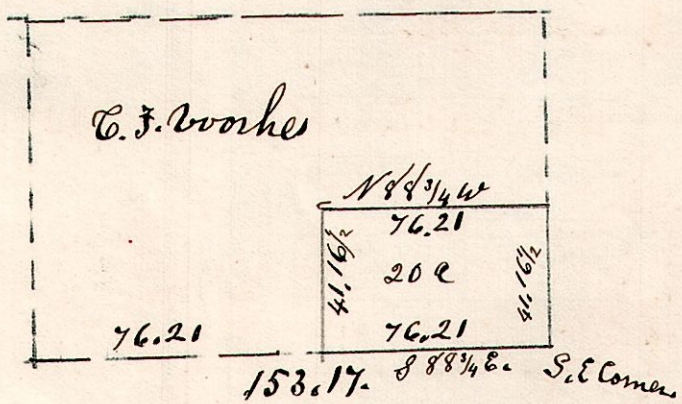 C. F. Voorhes
N 88 3/4 W
76.21
41.16 1/2
20 a
41.16 1/2
76.21
76.21
153.17.
S 88 3/4 E.
S. E Corner